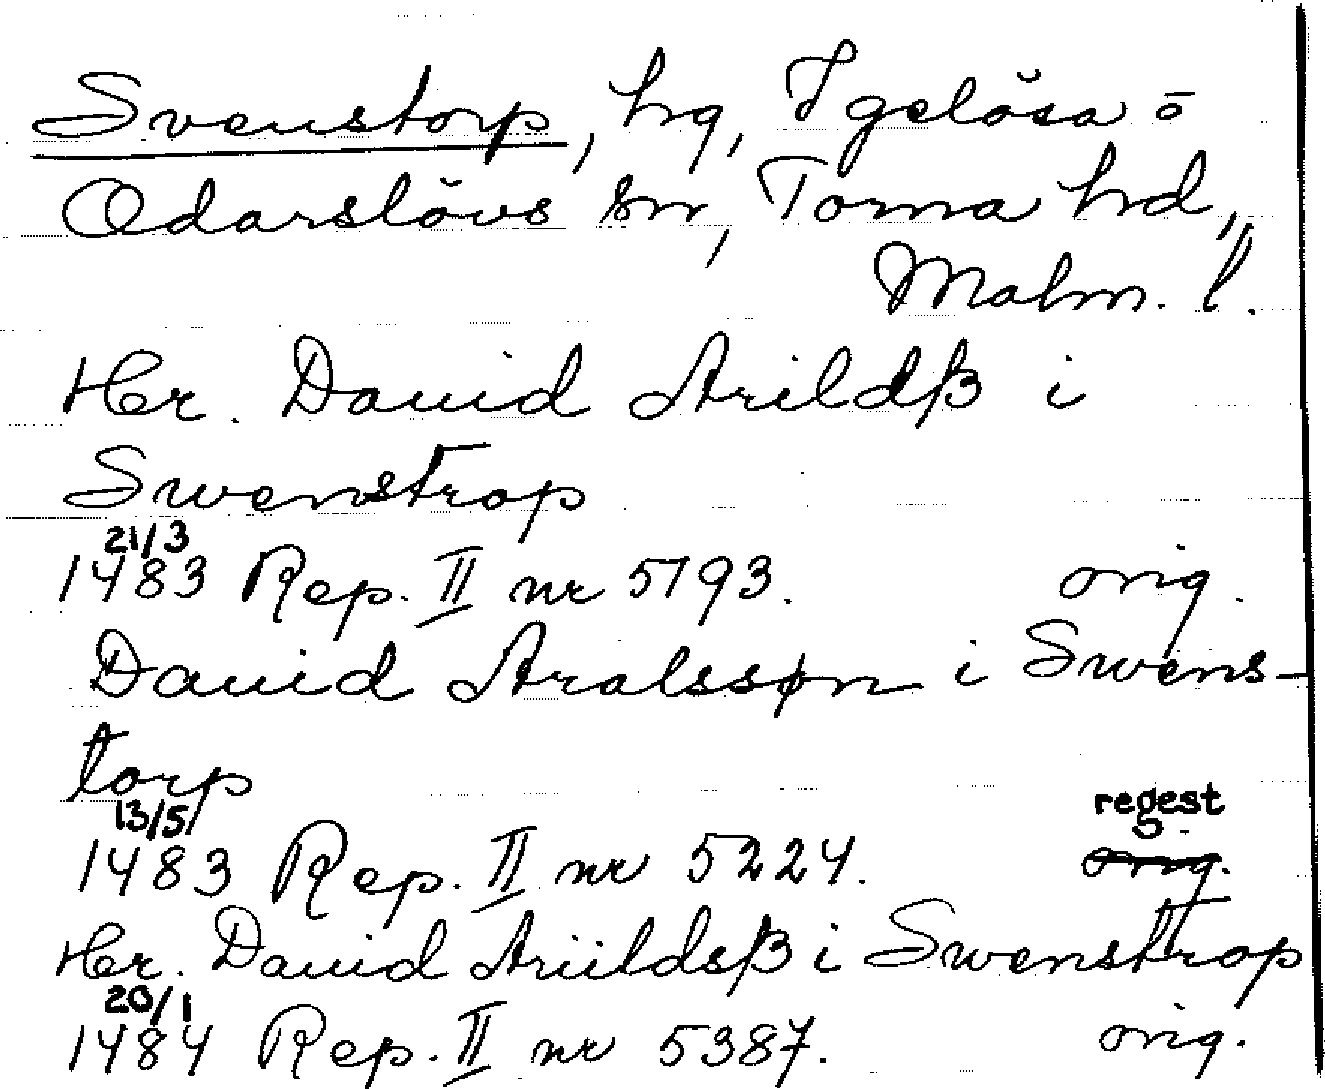 Svenstorp, hg, Igelösa o
Odarslövs snr, Torna hrd,
Malm. l.
Her. Dauid Arildß i
Swenstrop
21/3
1483 Rep. II nr 5193. orig.
Dauid Aralssøn i Swens-
torp
13/5
1483 Rep. II nr 5224. regest. orig.
Her. Dauid Ariildsß i Swenstrop
20/1
1484 Rep. II nr 5387. orig.